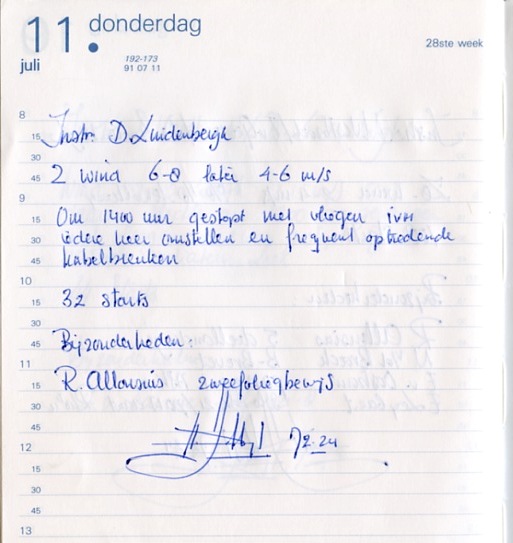 11. donderdag
juli
192-173
91 07 11
28ste week
8
15 Instr. D. Luidenbergh
30
45 2 wind 6-8 later 4-6 m/s
9
15 Om 1400 uur gestopt met vliegen ivm
30 iedere keer omstellen en frequent optredende
45 kabelbreuken
10
15 32 starts
30
45 Bijzonderheden:
11
15 R. Allousius zweefvliegbewijs
30
45
12
15
30
45
13